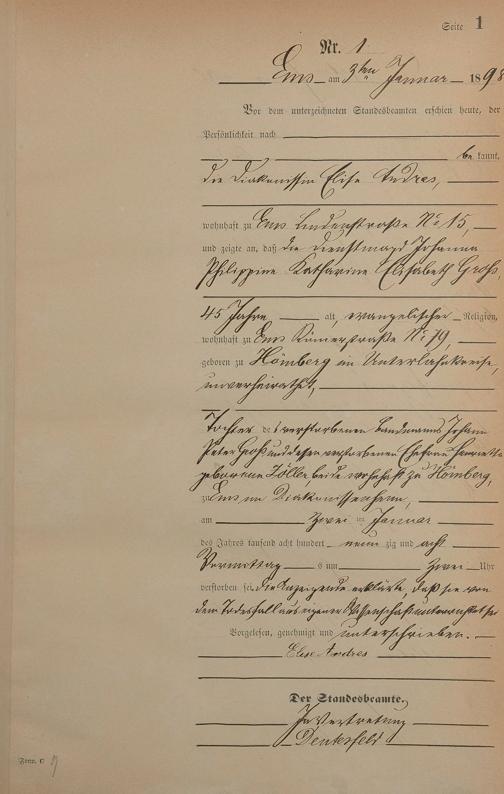 Seite 1
Nr. 1
Ems am 3ten Januar 1898
Vor dem unterzeichneten Standesbeamten erschien heute, der
Persönlichkeit nach
be kannt,
die Diakonissin Elise Andres,
wohnhaft zu Ems Lindenstraße No 15,
und zeigte an, daß die Dienstmagd Johanna
Philippine Katharine Elisabeth Groß,
45 Jahre alt, evangelischer Religion,
wohnhaft zu Ems Römerstraße No 79,
geboren zu Hömberg im Unterlahnkreise,
unverheirathet,
Tochter des verstorbenen Landmanns Johann
Peter Groß und dessen verstorbenen Ehefrau Henriette
geborene Zöller beide wohnhaft zu Hömberg,
zu Ems im Diakonissenheim,
am zwei ten Januar
des Jahres tausend acht hundert neun zig und acht
Vormittags um zwei Uhr
verstorben sei, die Anzeigende erklärte, daß sie von
dem Todesfall aus eigener Wissenschaft unterrichtet sei
Vorgelesen, genehmigt und unterschrieben.
Elise Andres
Der Standesbeamte.
In Vertretung
Form. C